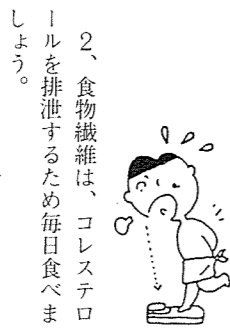 ２、食物繊維は、コレステロ
ールを排泄するため毎日食べま
しょう。